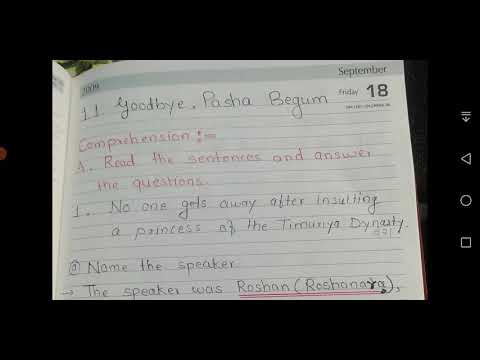 September
2009
Friday 18
11. Goodbye, Pasha Begum
Comprehension :-
A. Read the sentences and answer
the questions.
1. No one gets away after insulting
a princess of the Timuriya Dynasty.
a) Name the speaker
→ The speaker was Roshan (Roshanara),